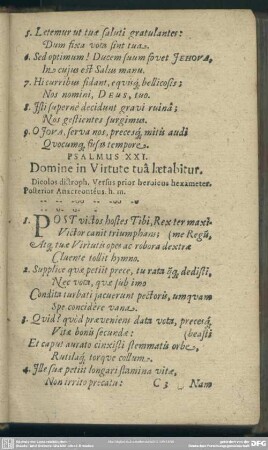 5. Letemur ut tuæ saluti gratulantes:
Dum fixa vota sint tua.
6. Sed optimum! Ducem suum fovet JEHOVA,
In cujus est Salus manu.
7. Hi curribus fidant, equisq; bellicosis;
Nos nomini, DEUS, tuo.
8. Isti supernè decidunt gravi ruinâ;
Nos gestientes surgimus.
9. O JOVA, serva nos, precesq; mitis audi
Quocumq; fusas tempore.
PSALMUS XXI.
Domine in Virtute tuâ lætabitur.
Dicolos distroph. Versus prior heroicus hexameter.
Posterior Anacreonteus. h. m.
1. POST victos hostes Tibi, Rex ter maxi-
Victor canit triumphans; (me Regũ,
Atq; tuæ Virtutis opes ac robora dextræ
Cluente tollit hymno.
2. Supplice quæ petiit prece, tu rata dedisti,
Nec vota, quæ sub imo
Condita turbati jacuerunt pectoris, umquam
Spe concidêre vana.
3. Quid? quòd præveniens data vota, precesq;
Vitæ bonis secundæ: (beasti
Et caput aurato cinxisti stemmatis orbe,
Rutilaq; torque collum.
4. Ille suæ petiit longæ stamina vitæ,
Non irrito precatu: C 3 Nam